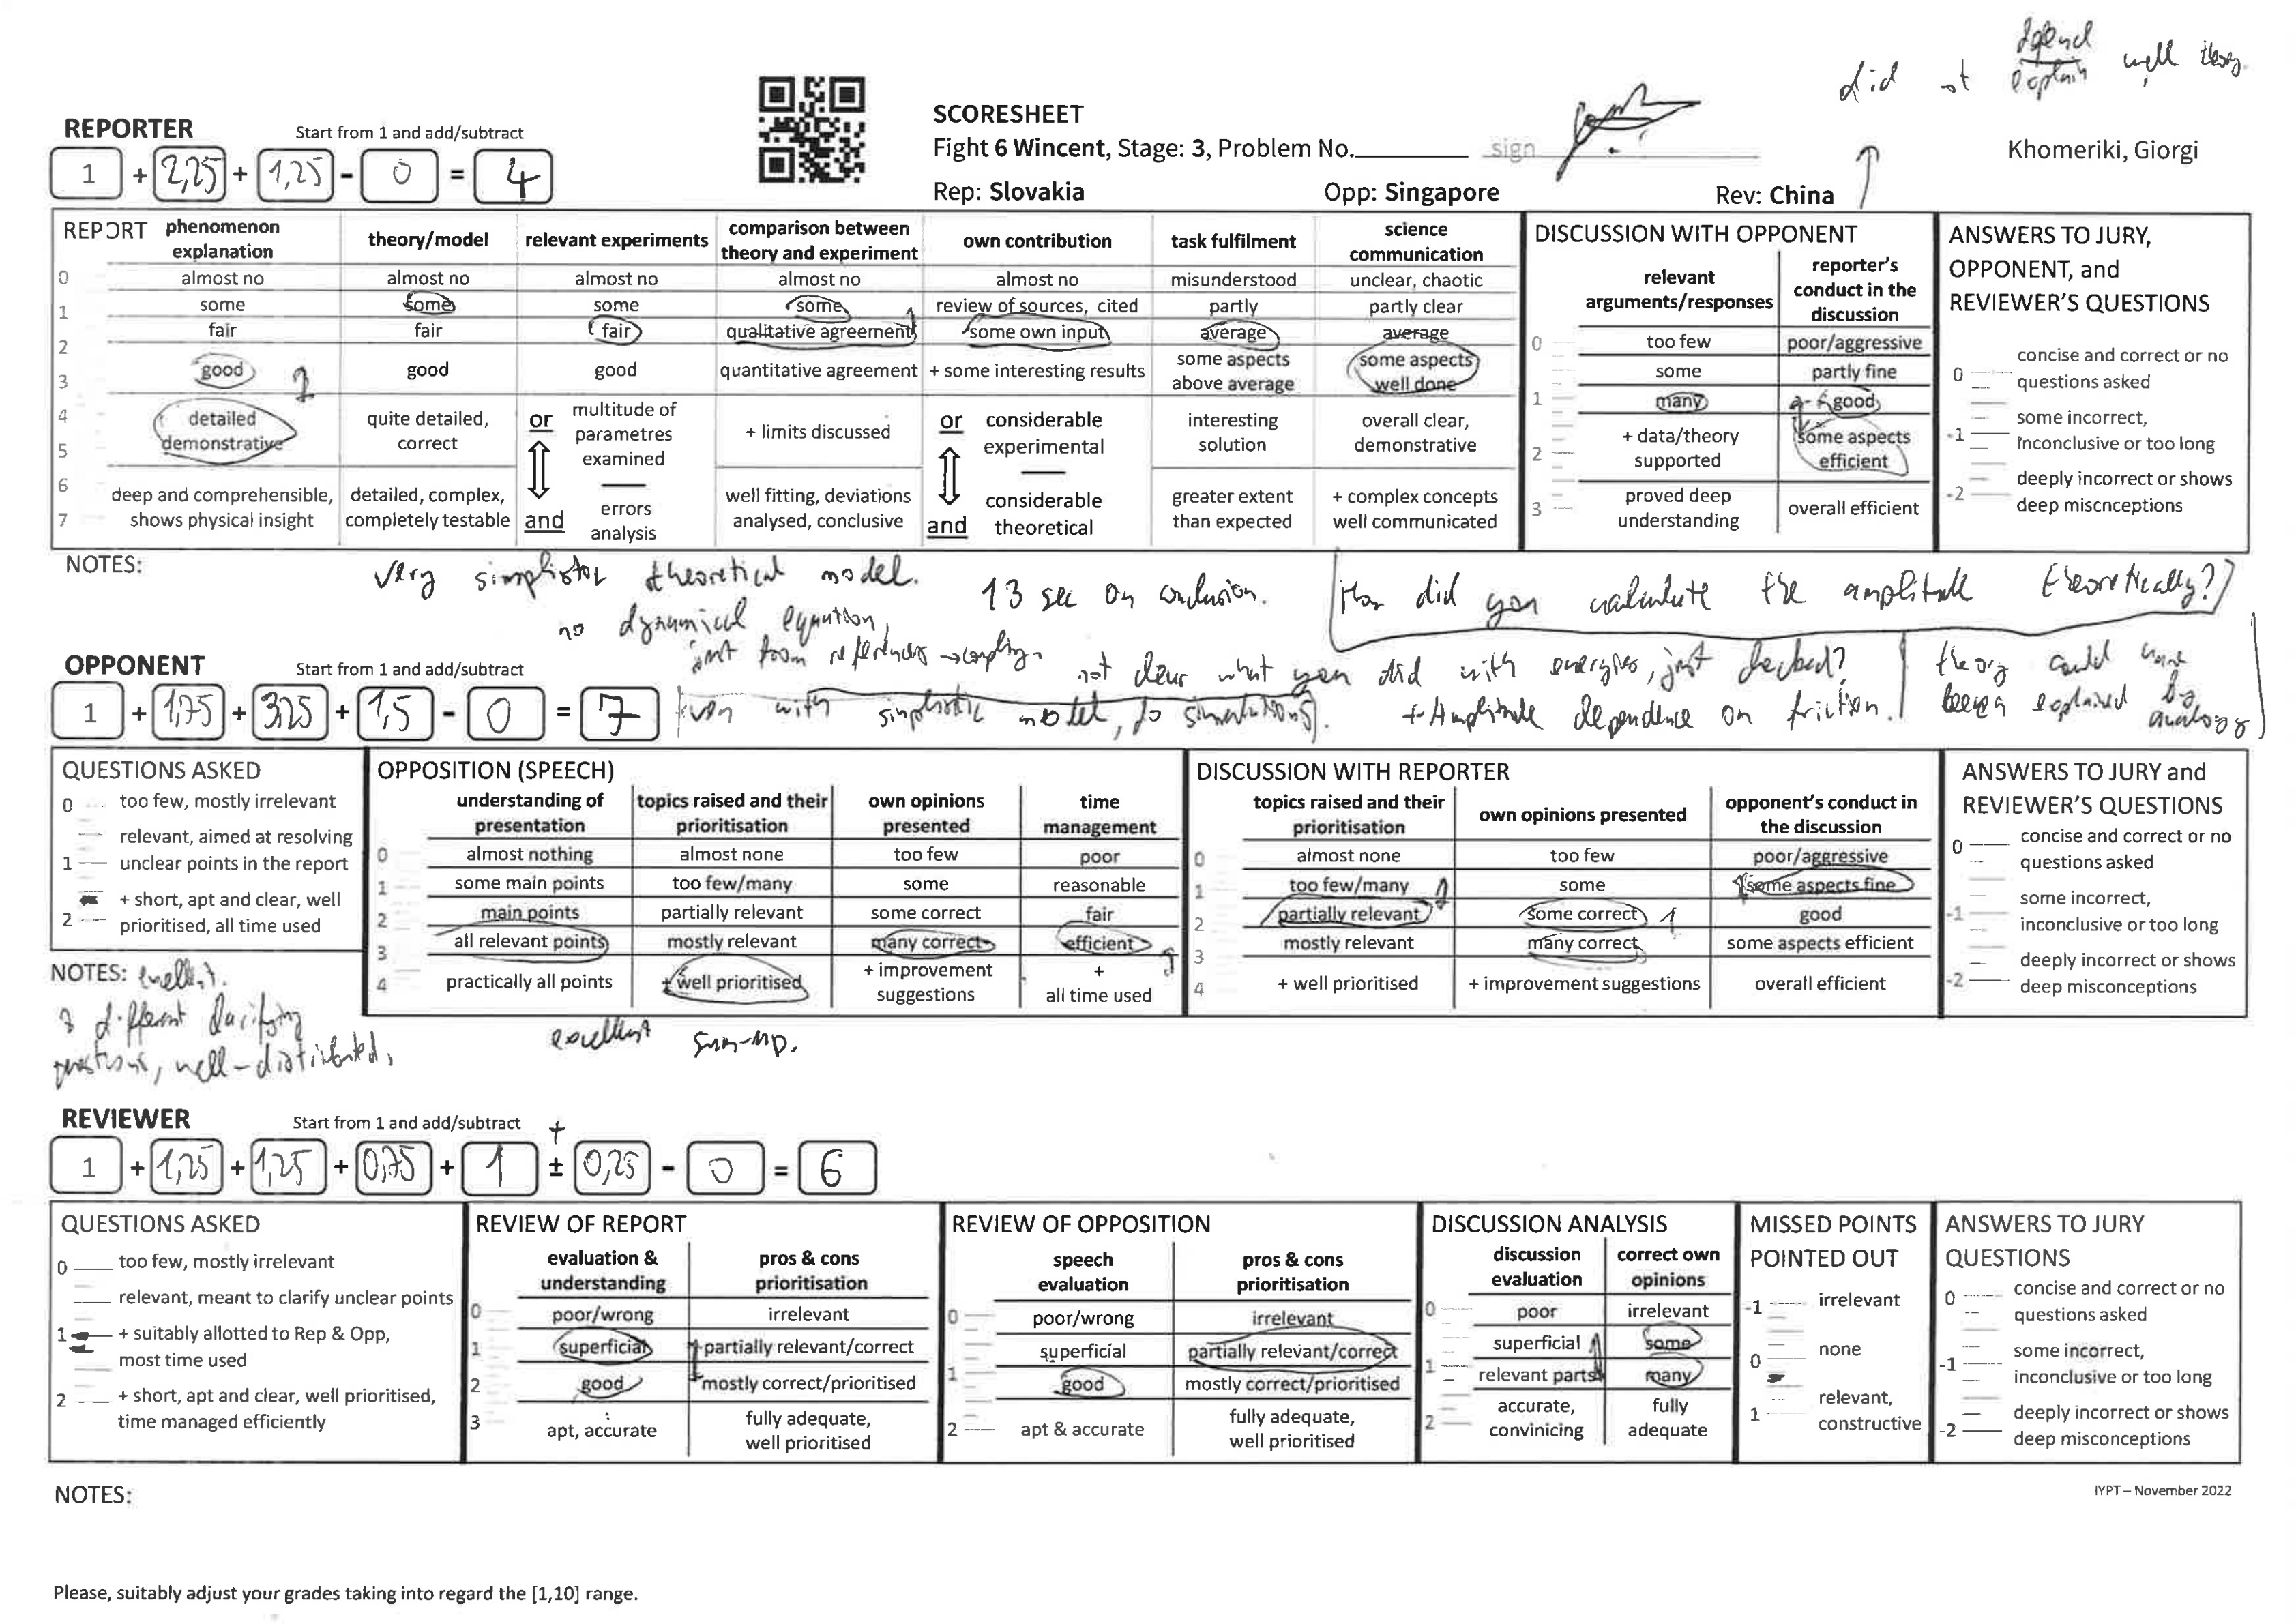 did not defend explain well theory.
SCORESHEET
REPORTER Start from 1 and add/subtract
Fight 6 Wincent, Stage: 3, Problem No. sign
Khomeriki, Giorgi
1 + 2,25 + 1,25 - 0 = 4
Rep: Slovakia Opp: Singapore Rev: China
REPORT
phenomenon explanation
theory/model
relevant experiments
comparison between theory and experiment
own contribution
task fulfilment
science communication
0 almost no almost no almost no almost no almost no misunderstood unclear, chaotic
1 some some some some review of sources, cited partly partly clear
fair fair fair qualitative agreement some own input average average
2
3 good good good quantitative agreement + some interesting results some aspects above average some aspects well done
4 5 detailed demonstrative quite detailed, correct or multitude of parametres examined + limits discussed or considerable experimental interesting solution overall clear, demonstrative
6 7 deep and comprehensible, shows physical insight detailed, complex, completely testable and errors analysis well fitting, deviations analysed, conclusive and considerable theoretical greater extent than expected + complex concepts well communicated
DISCUSSION WITH OPPONENT
relevant arguments/responses reporter's conduct in the discussion
0 too few poor/aggressive
some partly fine
1 many good
2 + data/theory supported some aspects efficient
3 proved deep understanding overall efficient
ANSWERS TO JURY,
OPPONENT, and
REVIEWER'S QUESTIONS
0 concise and correct or no questions asked
-1 some incorrect, inconclusive or too long
-2 deeply incorrect or shows deep miscnceptions
NOTES:
very simplistor theoretical model.
13 sec on conclusion.
How did you calculate the amplitude theoretically?
no dynamical equation,
just from references
not clear what you did with energies, just
theory could have been explained by analogy
Even with simplistic model, do simulations.
+ Amplitude dependence on friction.
OPPONENT Start from 1 and add/subtract
1 + 1,75 + 3,25 + 1,5 - 0 = 7
QUESTIONS ASKED
0 too few, mostly irrelevant
1 relevant, aimed at resolving unclear points in the report
2 + short, apt and clear, well prioritised, all time used
OPPOSITION (SPEECH)
understanding of presentation topics raised and their prioritisation own opinions presented time management
0 almost nothing almost none too few poor
1 some main points too few/many some reasonable
2 main points partially relevant some correct fair
3 all relevant points mostly relevant many correct efficient
4 practically all points + well prioritised + improvement suggestions + all time used
DISCUSSION WITH REPORTER
topics raised and their prioritisation own opinions presented opponent's conduct in the discussion
0 almost none too few poor/aggressive
1 too few/many some some aspects fine
2 partially relevant some correct good
3 mostly relevant many correct some aspects efficient
4 + well prioritised + improvement suggestions overall efficient
ANSWERS TO JURY and
REVIEWER'S QUESTIONS
0 concise and correct or no questions asked
-1 some incorrect, inconclusive or too long
-2 deeply incorrect or shows deep misconceptions
NOTES:
different clarifying
questions, well-distributed,
excellent sum-up.
REVIEWER Start from 1 and add/subtract
1 + 1,25 + 1,25 + 0,75 + 1 ± + 0,25 - 0 = 6
QUESTIONS ASKED
0 too few, mostly irrelevant
relevant, meant to clarify unclear points
1 + suitably allotted to Rep & Opp, most time used
2 + short, apt and clear, well prioritised, time managed efficiently
REVIEW OF REPORT
evaluation & understanding pros & cons prioritisation
0 poor/wrong irrelevant
1 superficial partially relevant/correct
2 good mostly correct/prioritised
3 apt, accurate fully adequate, well prioritised
REVIEW OF OPPOSITION
speech evaluation pros & cons prioritisation
0 poor/wrong irrelevant
superficial partially relevant/correct
1 good mostly correct/prioritised
2 apt & accurate fully adequate, well prioritised
DISCUSSION ANALYSIS
discussion evaluation correct own opinions
0 poor irrelevant
superficial some
1 relevant parts many
2 accurate, convinicing fully adequate
MISSED POINTS
POINTED OUT
-1 irrelevant
0 none
1 relevant, constructive
ANSWERS TO JURY
QUESTIONS
0 concise and correct or no questions asked
-1 some incorrect, inconclusive or too long
-2 deeply incorrect or shows deep misconceptions
NOTES:
IYPT – November 2022
Please, suitably adjust your grades taking into regard the [1,10] range.